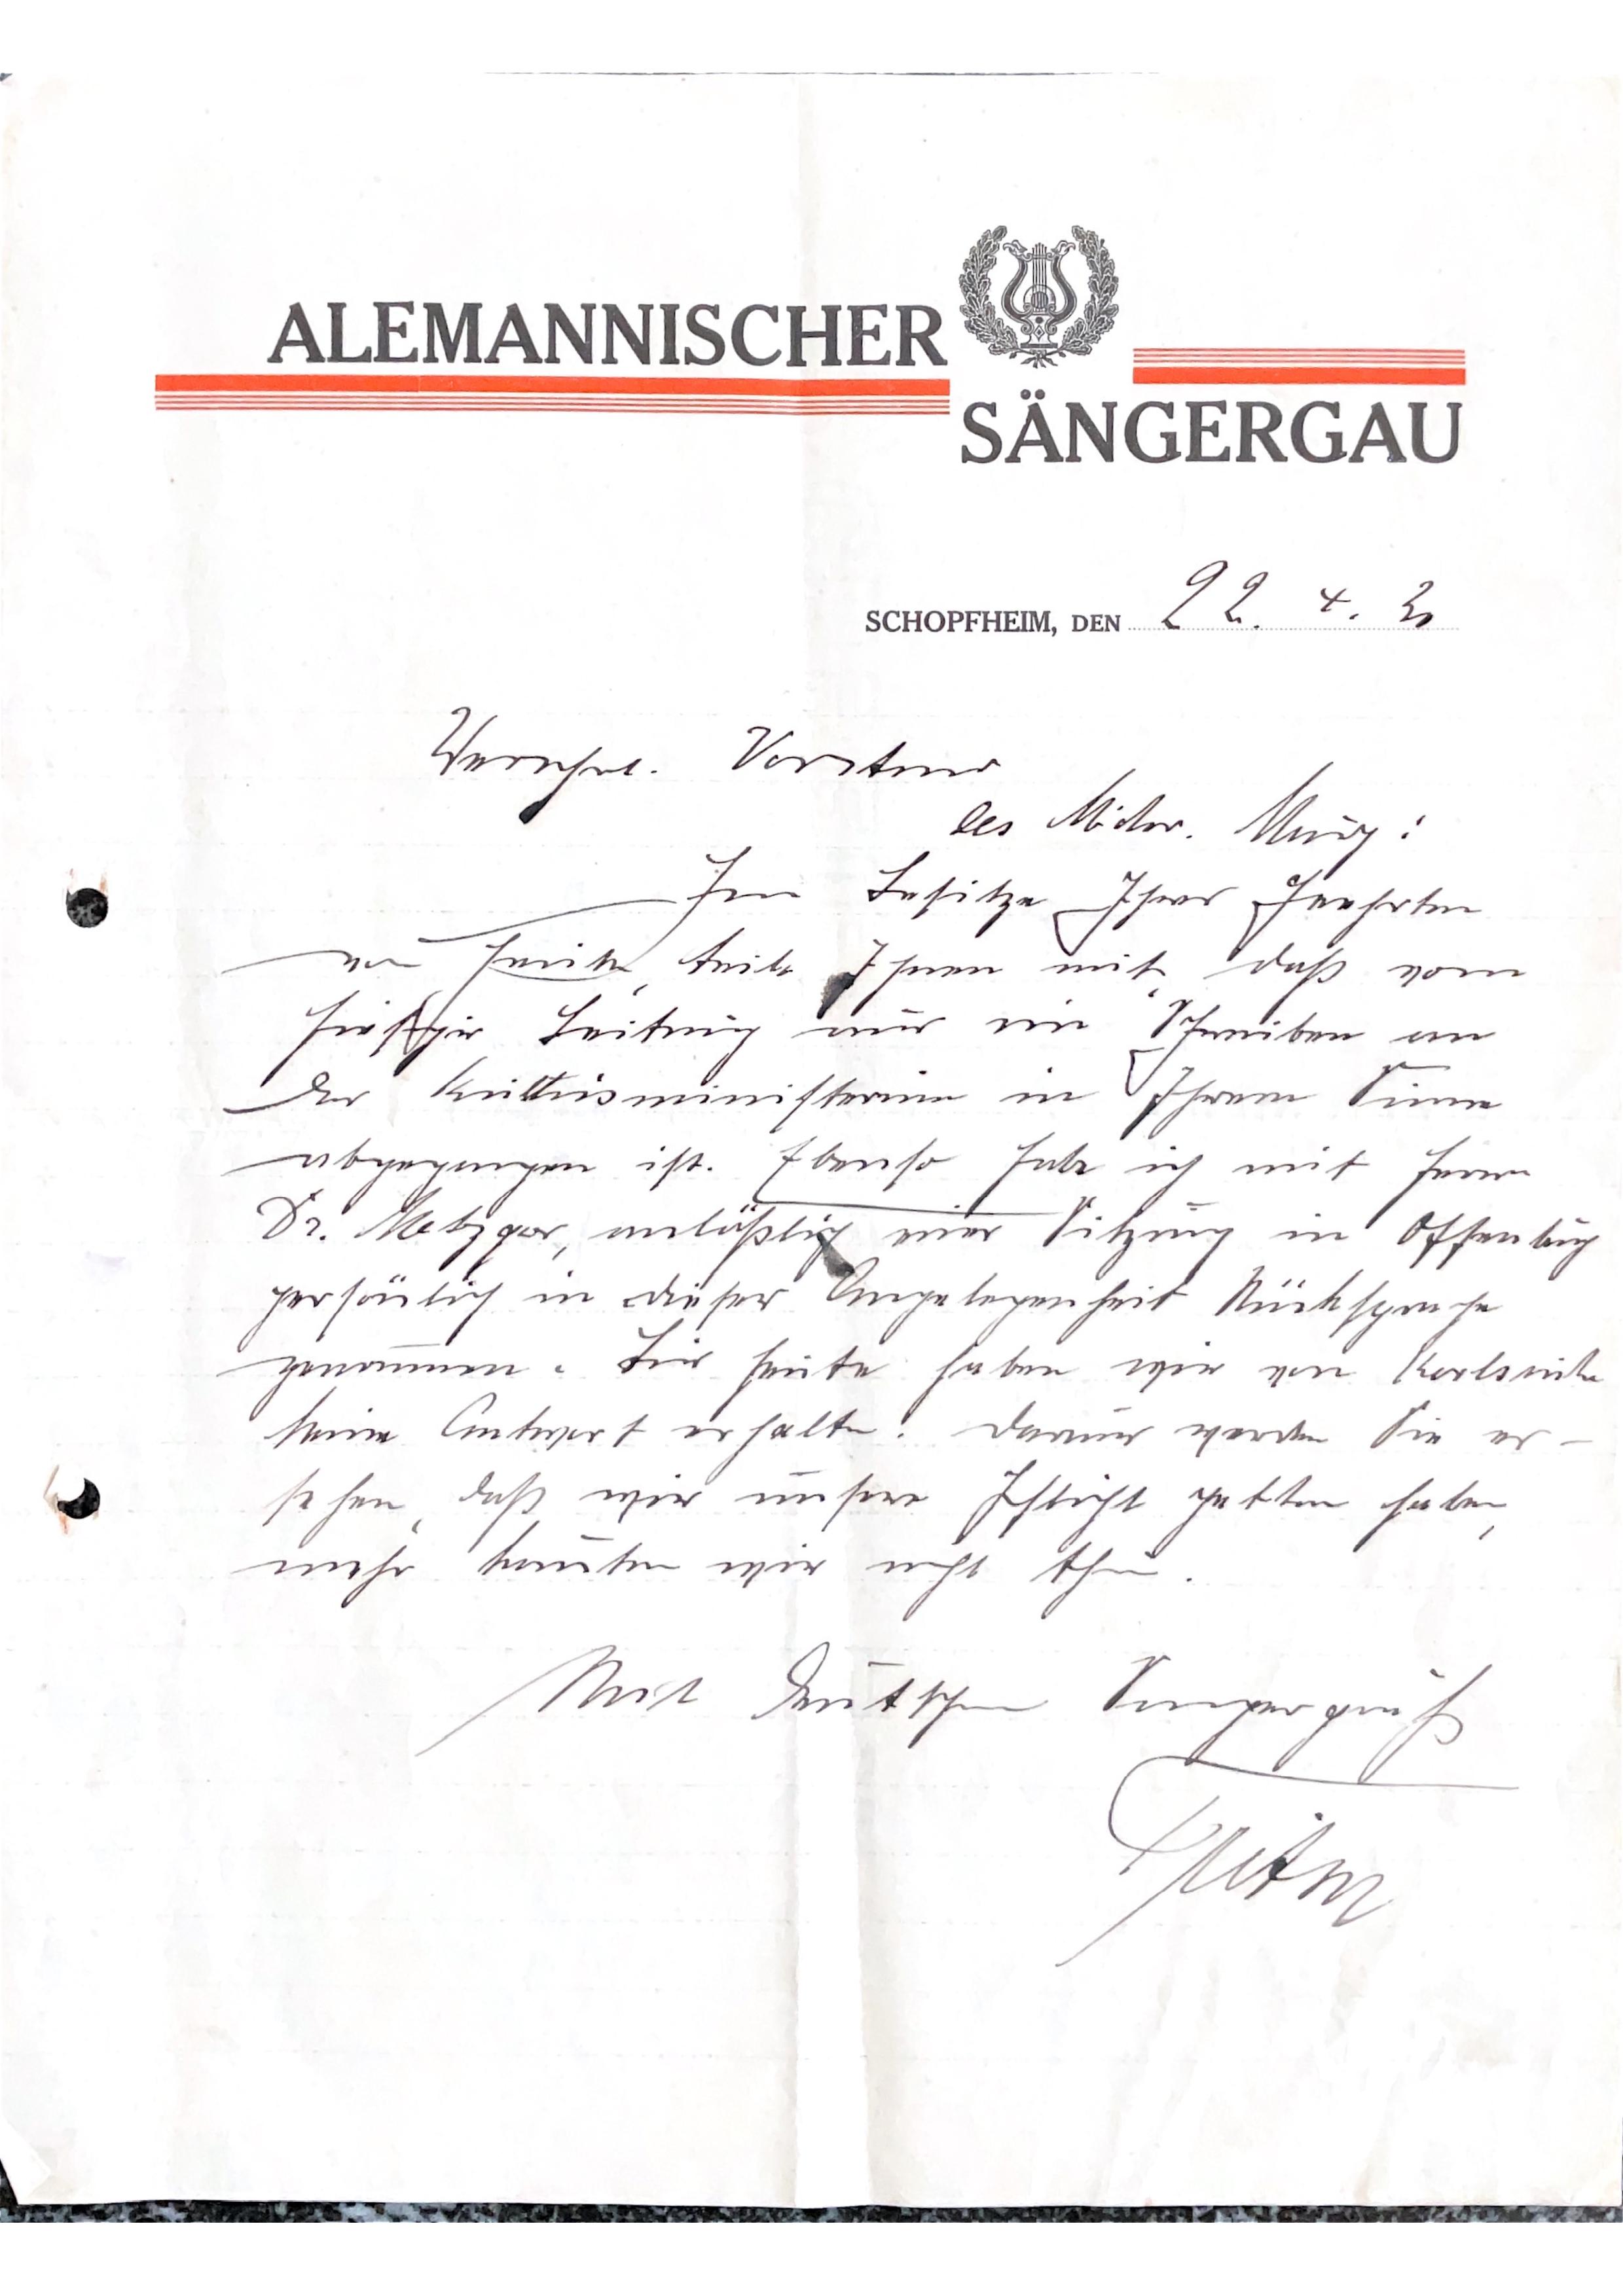 ALEMANNISCHER
SÄNGERGAU
SCHOPFHEIM, DEN 22. 4. 30
Verehrl. Vorstand
des Mchor. Murg!
Im Besitze Ihres Geehrten
von heute, teile Ihnen mit, daß vom
hiesiger Leitung nur ein Schreiben an
der Kultusministerium in Ihrem Sinne
abgegangen ist. Ebenso habe ich mit Herrn
Dr. Metzger, anläßlich einer Sitzung in Offenburg
persönlich in dieser Angelegenheit Rücksprache
genommen. Bis heute haben wir von Karlsruhe
keine Antwort erhalten. Daraus werden Sie er-
sehen, daß wir unsere Pflicht getan haben,
mehr konnten wir nicht thun.
Mit deutschem Sängergruß